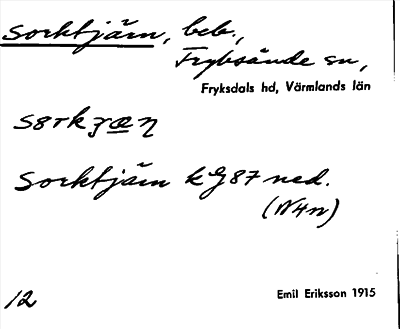 Sorktjärn, beb.,
Fryksände sn,
Fryksdals hd, Värmlands län
Sorktjärn
ned.
(N4n)
12
Emil Eriksson 1915